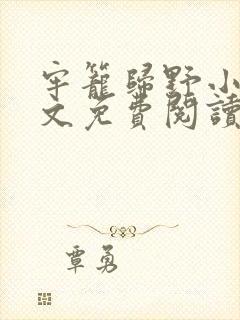 牢籠歸野小
文免費閱讀
覃勇